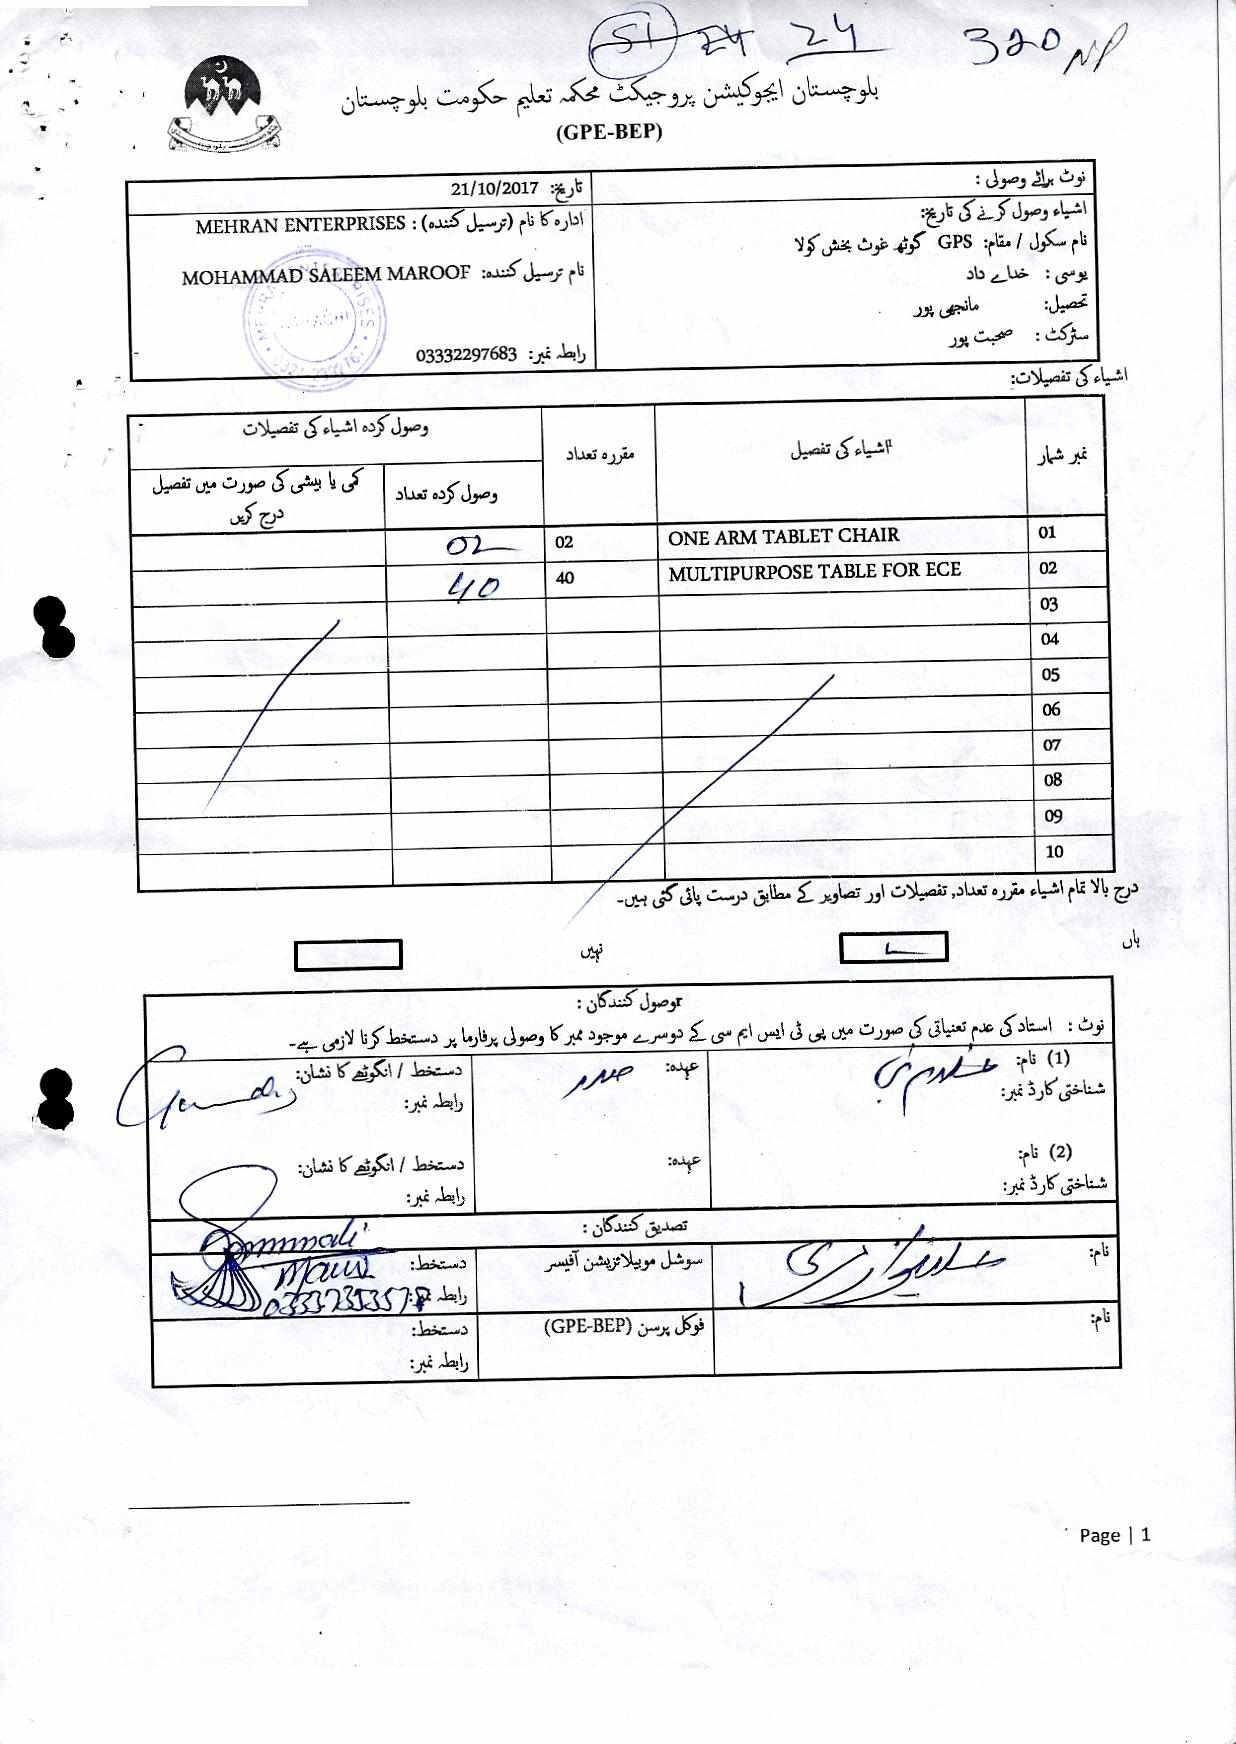 51 24 24 320 NP
بلوچستان ایجوکیشن پروجیکٹ محکمہ تعلیم حکومت بلوچستان
(GPE-BEP)
نوٹ برائے وصولی :
اشیاء وصول کرنے کی تاریخ:
نام سکول / مقام: GPS گوٹھ غوث بخش کولا
یوسی : خداے داد
تحصیل: مانجھی پور
سٹرکٹ : صحبت پور
تاریخ: 21/10/2017
ادارہ کا نام (ترسیل کنندہ) : MEHRAN ENTERPRISES
نام ترسیل کنندہ: MOHAMMAD SALEEM MAROOF
رابطہ نمبر: 03332297683
اشیاء کی تفصیلات:
نمبر شمار اشیاء کی تفصیل مقررہ تعداد وصول کردہ اشیاء کی تفصیلات
وصول کردہ تعداد کمی یا بیشی کی صورت میں تفصیل درج کریں
01 ONE ARM TABLET CHAIR 02 02
02 MULTIPURPOSE TABLE FOR ECE 40 40
03
04
05
06
07
08
09
10
درج بالا تمام اشیاء مقررہ تعداد, تفصیلات اور تصاویر کے مطابق درست پائی گئی ہیں۔
ہاں نہیں
وصول کنندگان :
نوٹ : استاد کی عدم تعنیاتی کی صورت میں پی ٹی ایس ایم سی کے دوسرے موجود ممبر کا وصولی پرفارما پر دستخط کرنا لازمی ہے۔
(1) نام: عہدہ: صدر دستخط / انگوٹھے کا نشان:
شناختی کارڈ نمبر: رابطہ نمبر:
(2) نام: عہدہ: دستخط / انگوٹھے کا نشان:
شناختی کارڈ نمبر: رابطہ نمبر:
تصدیق کنندگان :
نام: سوشل موبیلائزیشن آفیسر دستخط:
رابطہ نمبر:
نام: فوکل پرسن (GPE-BEP) دستخط:
رابطہ نمبر:
Page | 1